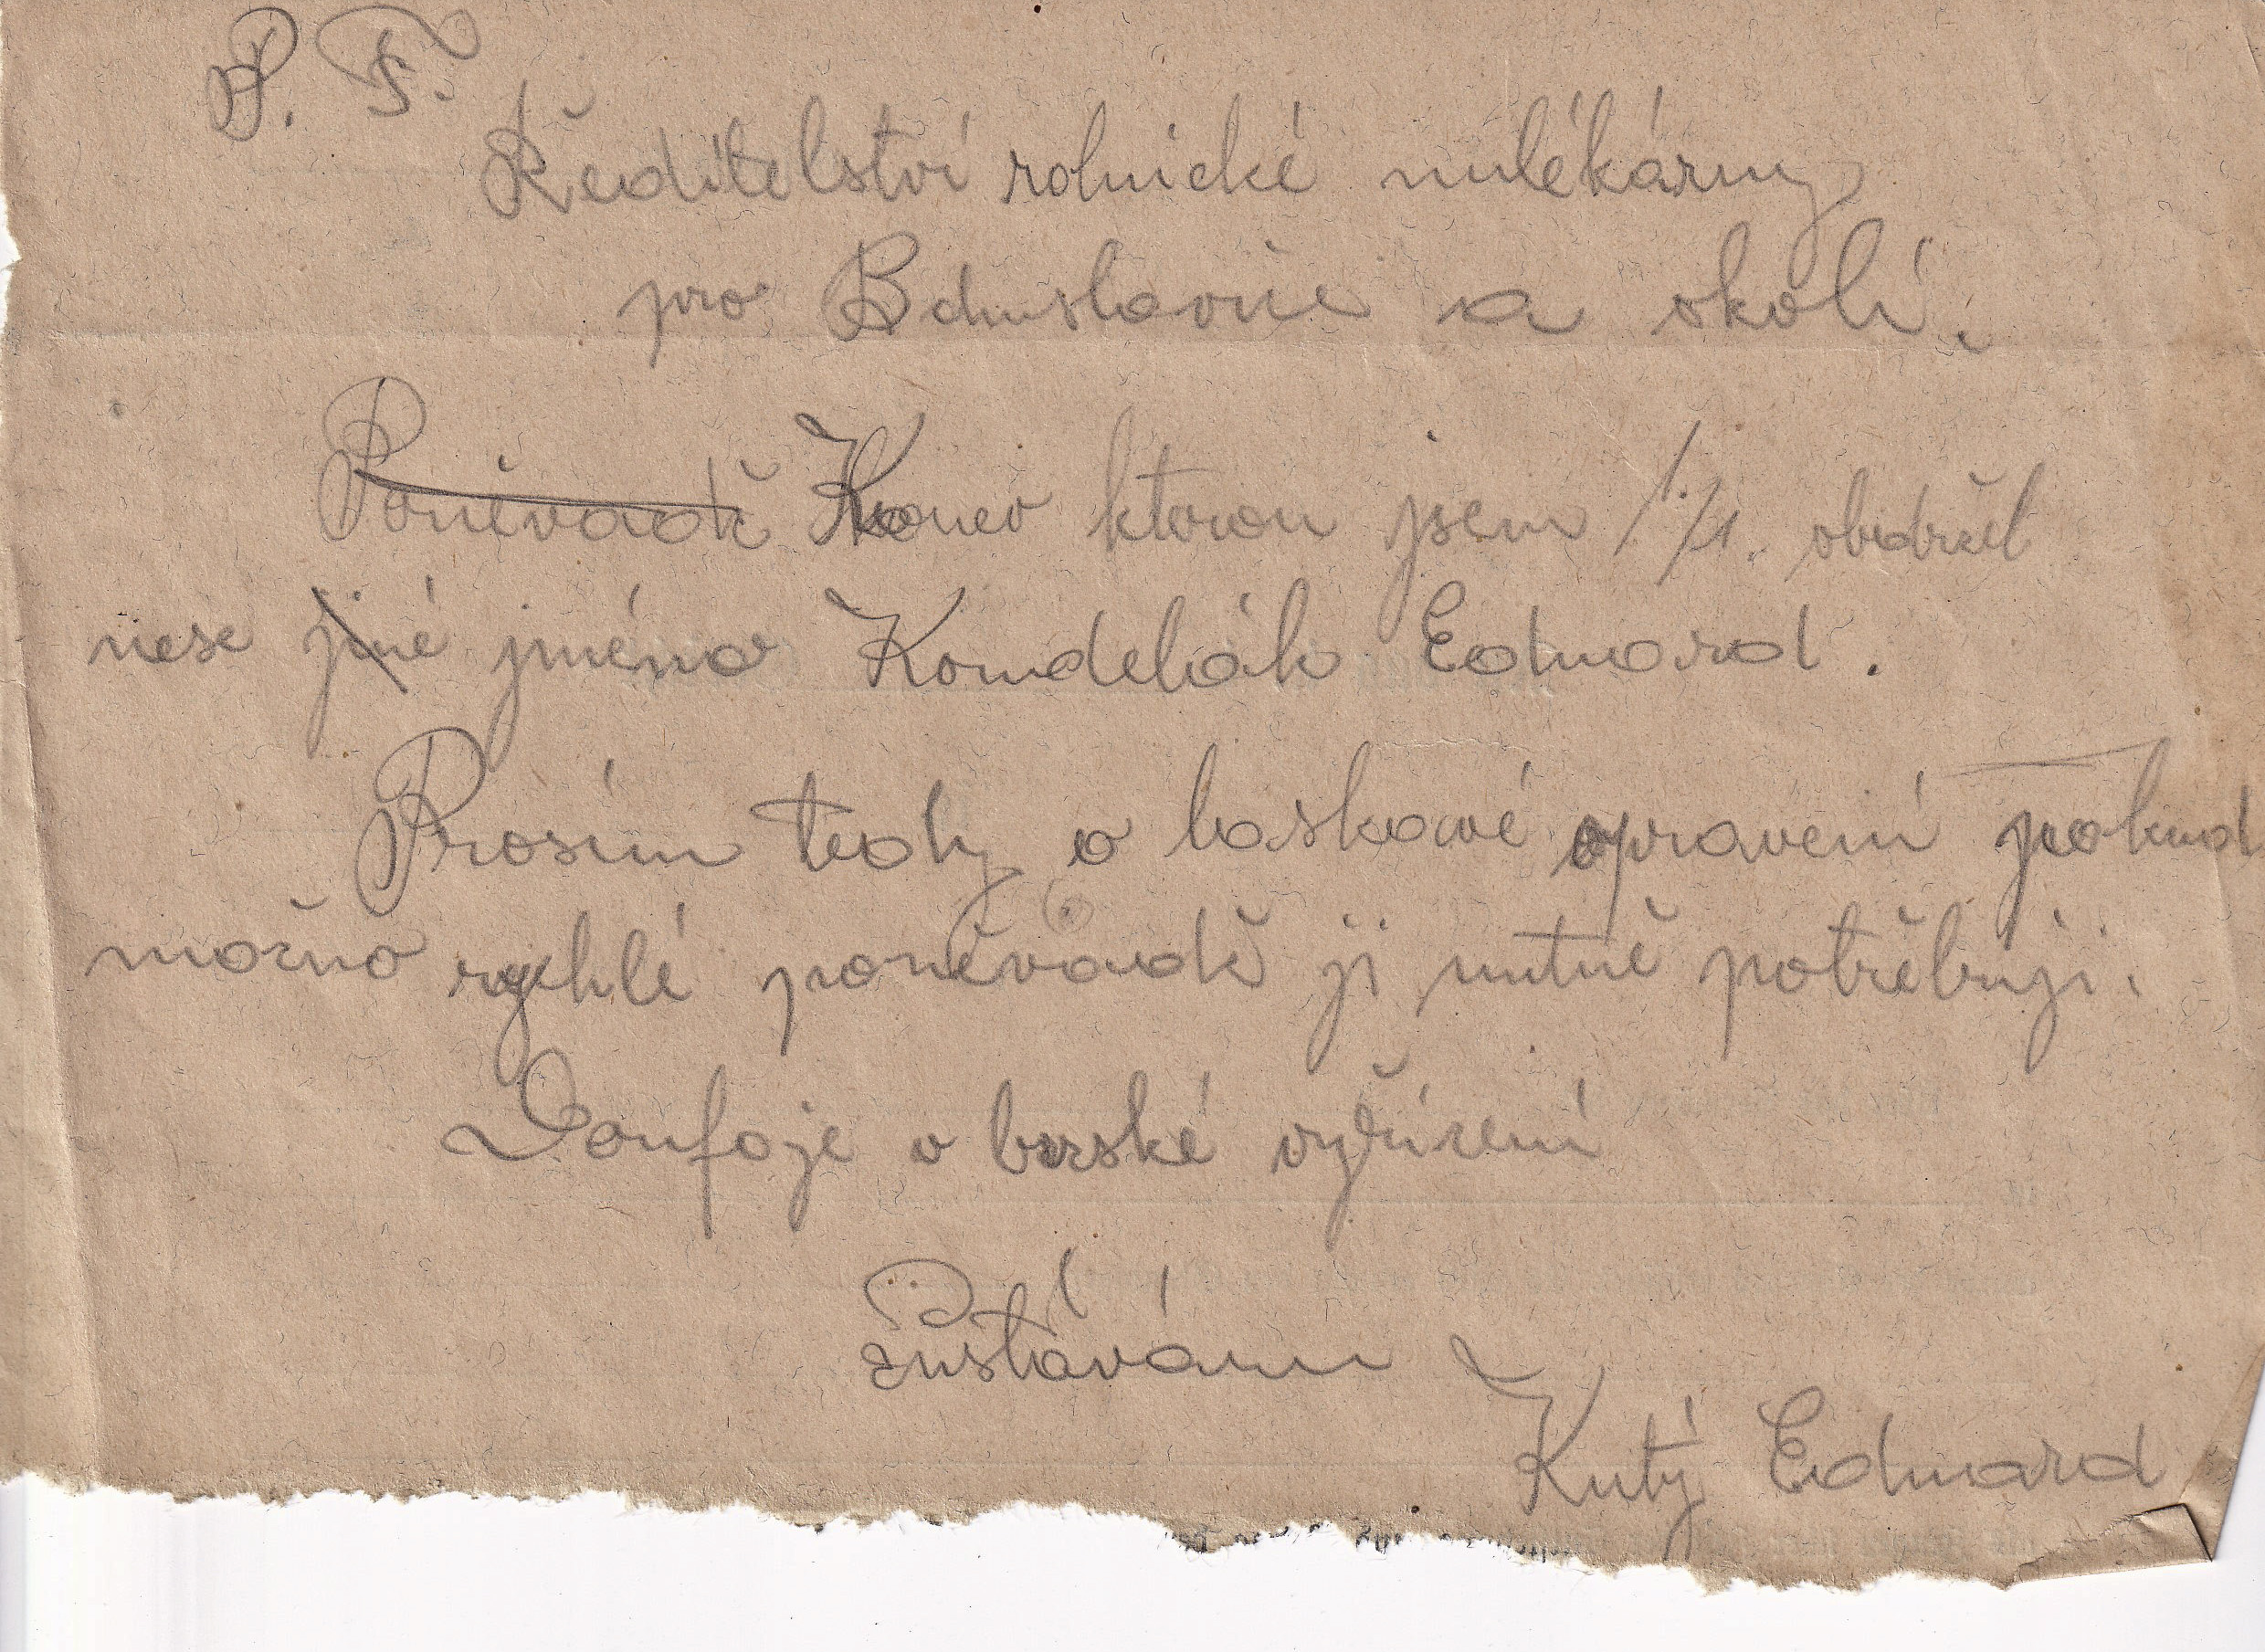 P. T.
Ředitelství rolnické mlékárny
pro Bohuslavice a okolí.
Poněvadž Konev kterou jsem 1./1. obdržel
nese jiné jméno Komdelák Eduard.
Prosím tedy o laskavé opravení pokud
možno rychlé poněvadž ji nutně potřebuji.
Doufaje v brzské vyřízení
zůstávám
Kutý Eduard